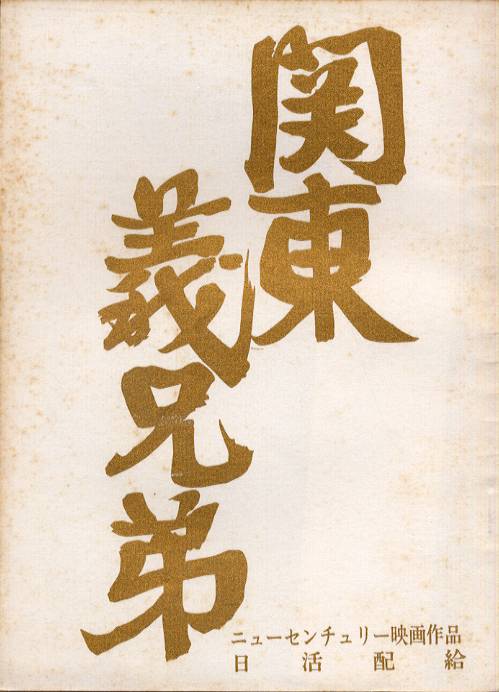 関東
義兄弟
ニューセンチュリー映画作品
日活配給